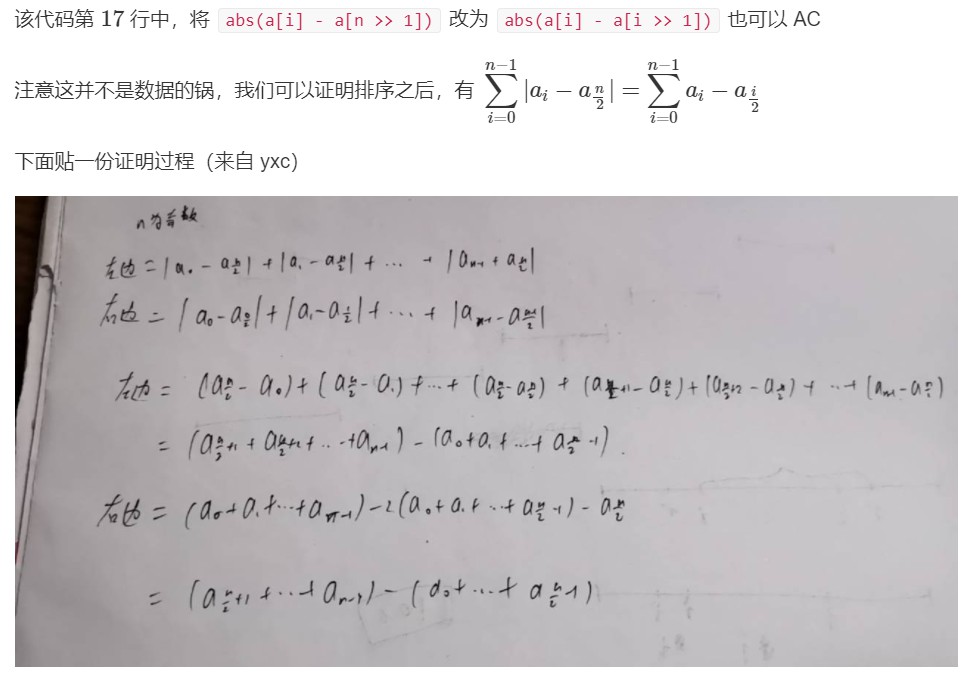 该代码第 17 行中，将 abs(a[i] - a[n >> 1]) 改为 abs(a[i] - a[i >> 1]) 也可以 AC
注意这并不是数据的锅，我们可以证明排序之后，有 \sum_{i=0}^{n-1} |a_i - a_{\frac{n}{2}}| = \sum_{i=0}^{n-1} a_i - a_{\frac{i}{2}}
下面贴一份证明过程（来自 yxc）
n为奇数
左边 = |a_0 - a_{\frac{n}{2}}| + |a_1 - a_{\frac{n}{2}}| + ... + |a_{n-1} + a_{\frac{n}{2}}|
右边 = |a_0 - a_{\frac{0}{2}}| + |a_1 - a_{\frac{1}{2}}| + ... + |a_{n-1} - a_{\frac{n-1}{2}}|
左边 = (a_{\frac{n}{2}} - a_0) + (a_{\frac{n}{2}} - a_1) + ... + (a_{\frac{n}{2}} - a_{\frac{n}{2}}) + (a_{\frac{n}{2}+1} - a_{\frac{n}{2}}) + (a_{\frac{n}{2}+2} - a_{\frac{n}{2}}) + ... + (a_{n-1} - a_{\frac{n}{2}})
= (a_{\frac{n}{2}+1} + a_{\frac{n}{2}+2} + ... + a_{n-1}) - (a_0 + a_1 + ... + a_{\frac{n}{2}-1}).
右边 = (a_0 + a_1 + ... + a_{n-1}) - 2(a_0 + a_1 + ... + a_{\frac{n}{2}-1}) - a_{\frac{n}{2}}
= (a_{\frac{n}{2}+1} + ... + a_{n-1}) - (a_0 + ... + a_{\frac{n}{2}-1})